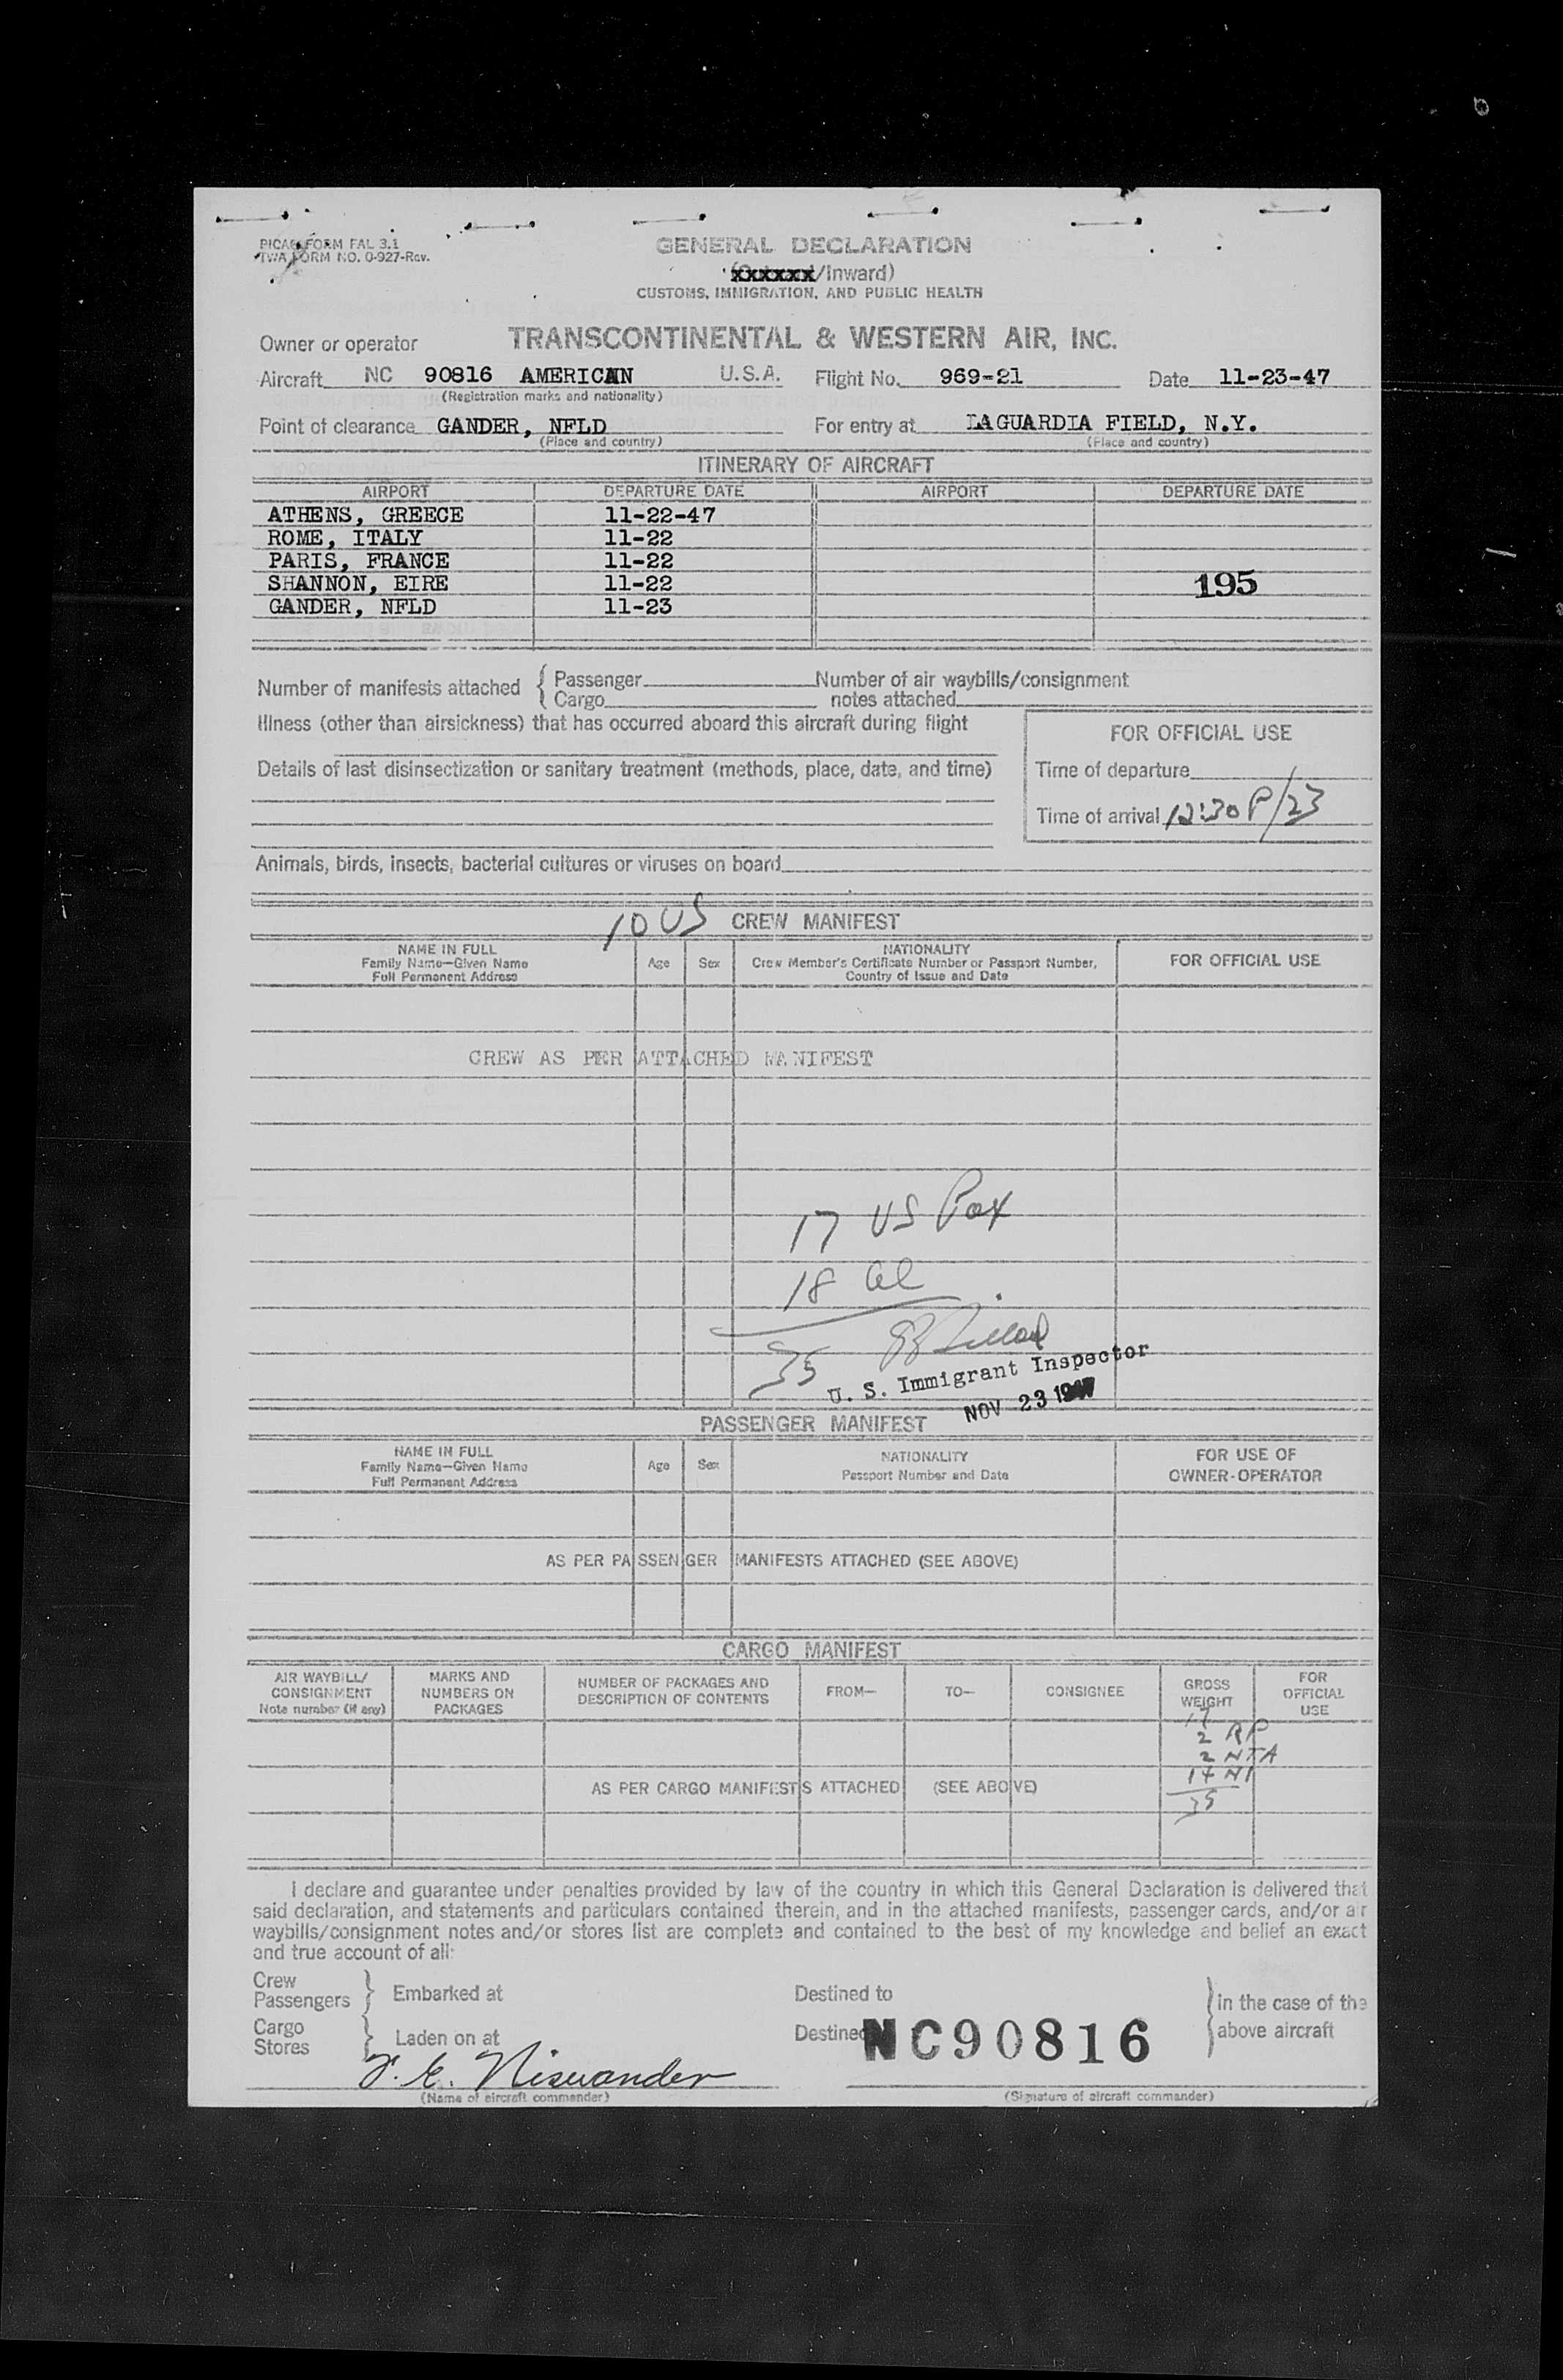 PICAO FORM FAL 3.1
TWA FORM NO. 0-927-Rev.
GENERAL DECLARATION
(xxxxxx/Inward)
CUSTOMS, IMMIGRATION, AND PUBLIC HEALTH
Owner or operator TRANSCONTINENTAL & WESTERN AIR, INC.
Aircraft NC 90816 AMERICAN U.S.A. Flight No. 969-21 Date 11-23-47
(Registration marks and nationality)
Point of clearance GANDER, NFLD For entry at LAGUARDIA FIELD, N.Y.
(Place and country) (Place and country)
ITINERARY OF AIRCRAFT
AIRPORT DEPARTURE DATE AIRPORT DEPARTURE DATE
ATHENS, GREECE 11-22-47
ROME, ITALY 11-22
PARIS, FRANCE 11-22
SHANNON, EIRE 11-22 195
GANDER, NFLD 11-23
Number of manifests attached { Passenger Number of air waybills/consignment
Cargo notes attached
Illness (other than airsickness) that has occurred aboard this aircraft during flight
FOR OFFICIAL USE
Details of last disinsectization or sanitary treatment (methods, place, date, and time)
Time of departure
Time of arrival 12:30 P/23
Animals, birds, insects, bacterial cultures or viruses on board
10 US CREW MANIFEST
NAME IN FULL
Family Name—Given Name
Full Permanent Address
Age Sex
NATIONALITY
Crew Member's Certificate Number or Passport Number,
Country of Issue and Date
FOR OFFICIAL USE
CREW AS PER ATTACHED MANIFEST
17 US Pax
18 al
35
U. S. Immigrant Inspector
NOV 23 1947
PASSENGER MANIFEST
NAME IN FULL
Family Name—Given Name
Full Permanent Address
Age Sex
NATIONALITY
Passport Number and Date
FOR USE OF
OWNER-OPERATOR
AS PER PASSENGER MANIFESTS ATTACHED (SEE ABOVE)
CARGO MANIFEST
AIR WAYBILL/
CONSIGNMENT
Note number (if any)
MARKS AND
NUMBERS ON
PACKAGES
NUMBER OF PACKAGES AND
DESCRIPTION OF CONTENTS
FROM—
TO—
CONSIGNEE
GROSS
WEIGHT
FOR
OFFICIAL
USE
17
2 RP
2 NTA
14 NI
35
AS PER CARGO MANIFESTS ATTACHED (SEE ABOVE)
I declare and guarantee under penalties provided by law of the country in which this General Declaration is delivered that
said declaration, and statements and particulars contained therein, and in the attached manifests, passenger cards, and/or air
waybills/consignment notes and/or stores list are complete and contained to the best of my knowledge and belief an exact
and true account of all:
Crew
Passengers } Embarked at Destined to } in the case of the
Cargo
Stores } Laden on at Destined NC90816 above aircraft
Niswander
(Name of aircraft commander) (Signature of aircraft commander)